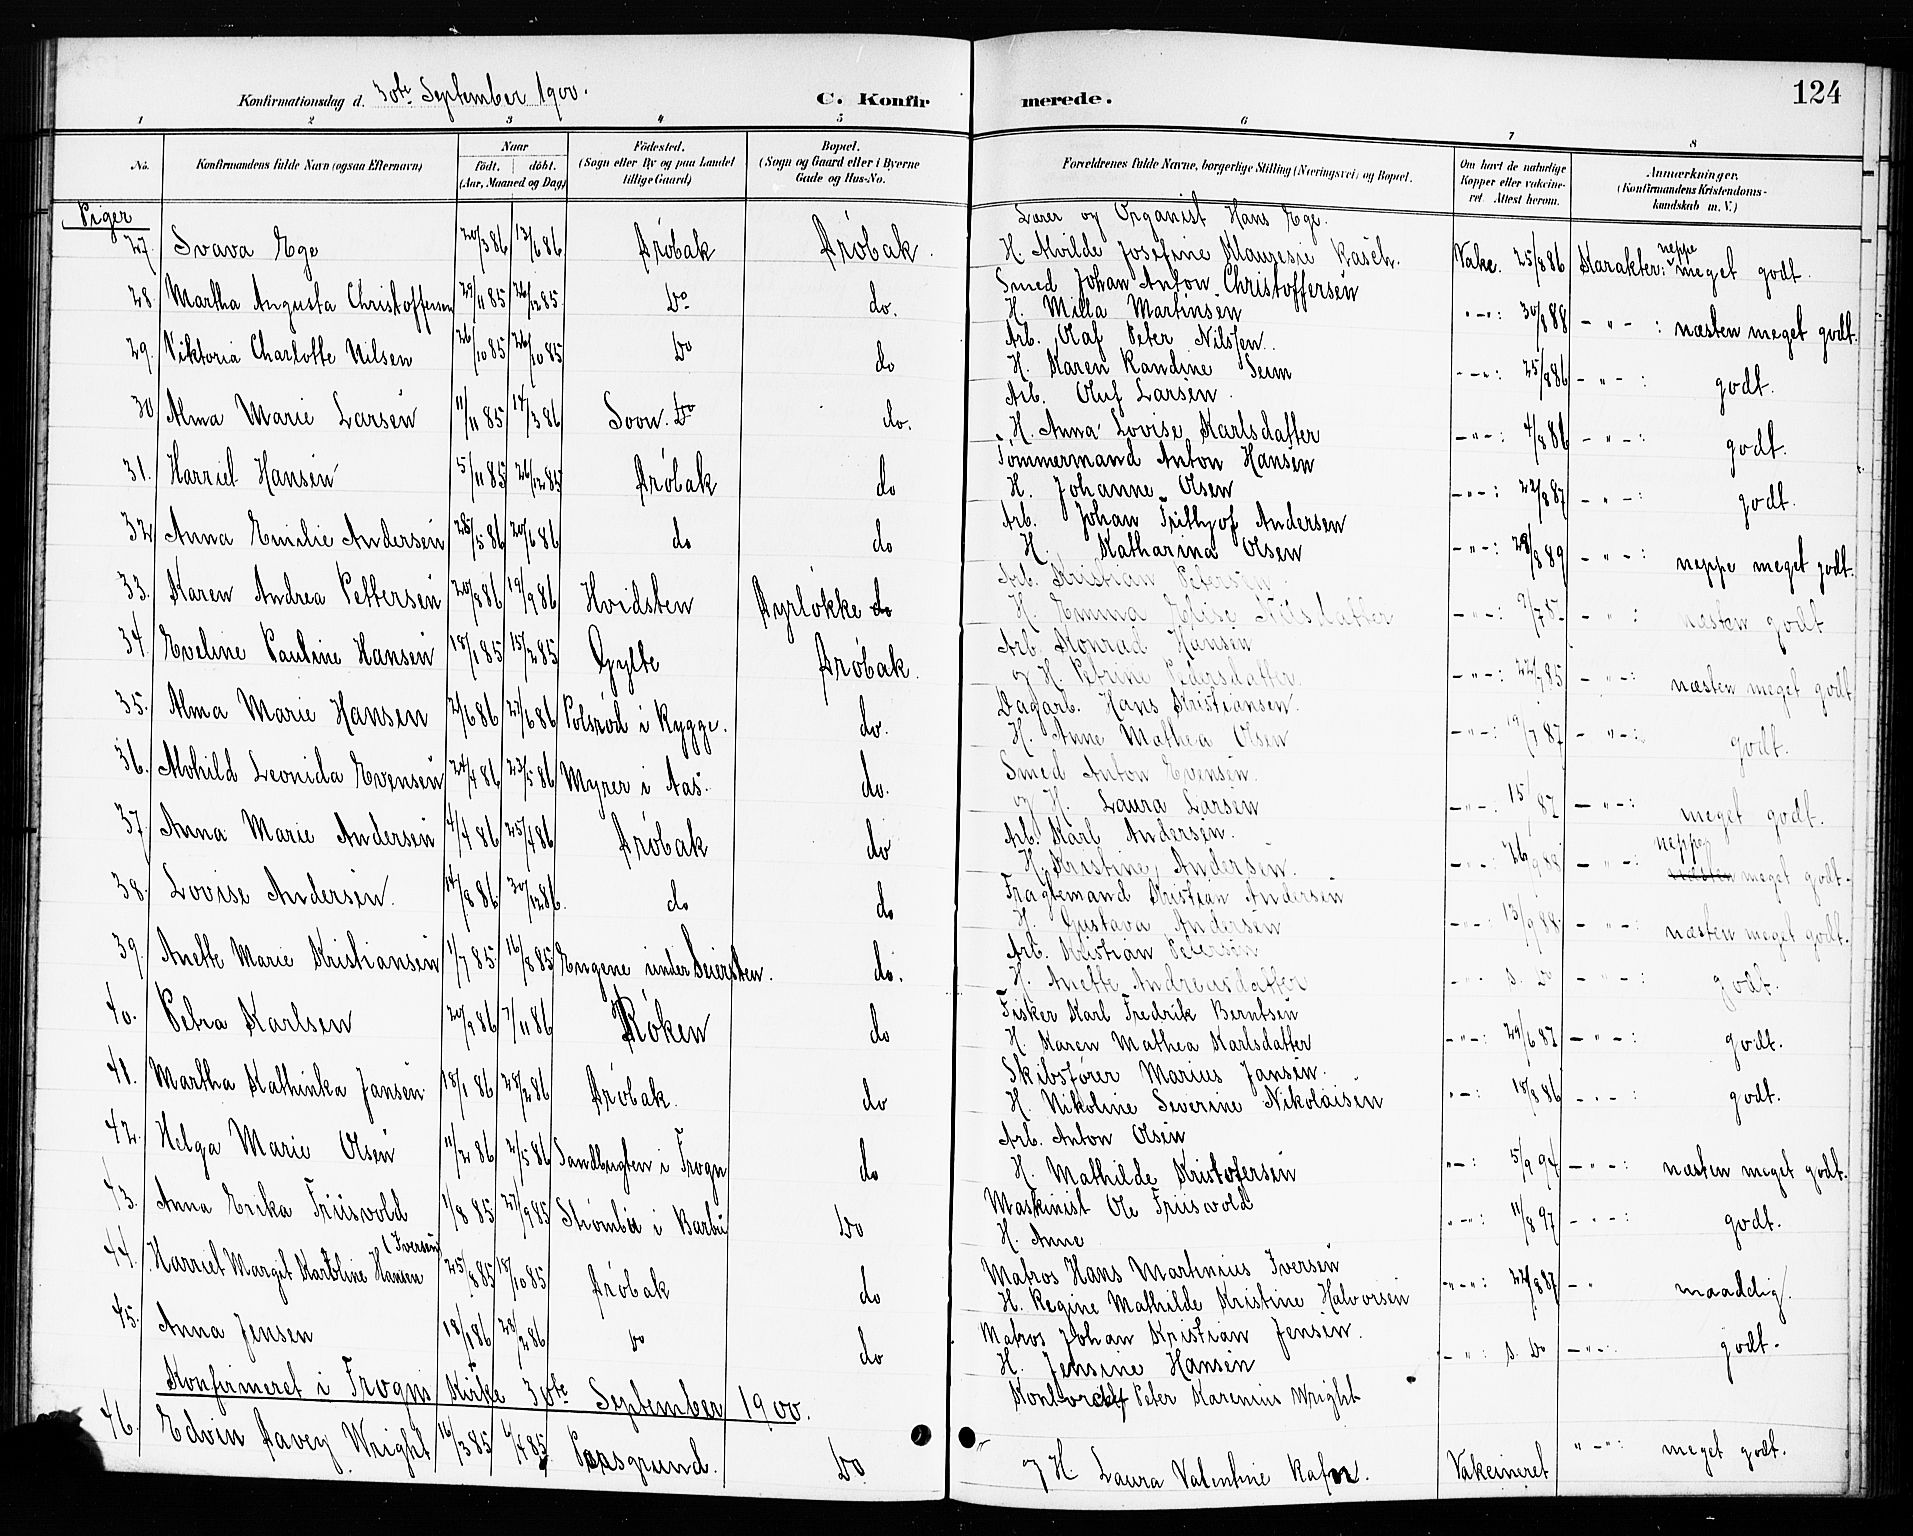 124
Konfirmationsdag d. 30te September 1900.
C. Konfirmerede.
1 2 3 4 5 6 7 8
No. Konfirmandens fulde Navn (ogsaa Efternavn) Naar født. døbt. (Aar, Maaned og Dag) Fødested. (Sogn eller By og paa Landet tillige Gaard) Bopæl. (Sogn og Gaard eller i Byerne Gade og Hus-No. Forældrenes fulde Navne, borgerlige Stilling (Næringsvei) og Bopæl. Om havt de naturlige Kopper eller vakcineret. Attest herom. Anmærkninger. (Konfirmandens Kristendomskundskab m. V.)
Piger
27. Svava Ege 20/3 86 13/6 86 Drøbak Drøbak. Lærer og Organist Hans Ege. H. Alvilde Josefine Rasch. Vakc. 25/8 86 Karakter: neppe meget godt.
28. Martha Augusta Christoffersen 29/11 85 26/12 85 Do do. Smed Johan Anton Christoffersen H. Milla Martinsen -"-: 30/8 88 -"-: næsten meget godt.
29. Viktoria Charlotte Nilsen 26/10 85 26/10 85 Do do Arb. Olaf Peter Nilssen. H. Karen Randine Seim -"-: 25/8 86 -"-: godt.
30 Alma Marie Larsen 11/11 85 14/3 86 Sovn. Do do. Arb. Oluf Larsen. H. Anna Lovise Karlsdatter -"-: 4/8 86 -"-: godt.
31. Harriet Hansen 5/11 85 26/12 85 Drøbak do Tømmermand Anton Hansen H. Johanne Olsen -"-: 22/8 87 -"-: godt.
32 Anna Emilie Andersen 28/5 86 20/6 86 do do Arb. Johan Frithjof Andersen H. Katharina Olsen -"-: 28/8 89 -"-: neppe meget godt.
33. Karen Andrea Pettersen 20/8 86 19/9 86 Hvidsten Dyrløkke do Arb. Kristian Petersen H. Emma Elise Nilsdatter -"-: -"-: næsten godt
34. Eveline Pauline Hansen 18/1 85 15/2 85 Gylte Drøbak. Arb. Konrad Hansen og H. Petrine Pedersdatter. -"-: 22/7 85 -"-: næsten meget godt
35. Alma Marie Hansen 2/6 86 27/6 86 Polsrød i Rygge. do. Dagarb. Hans Kristiansen. H. Anne Mathea Olsen -"-: 19/7 87 -"-: godt.
36. Alvhild Leonida Evensen 24/4 86 23/5 86 Myrer i Aas. do. Smed Anton Evensen. og H. Laura Larsen -"-: 15/ 87 -"-: meget godt.
37. Anna Marie Andersen 4/4 86 25/4 86 Drøbak do Arb. Karl Andersen. H. Kristine Andersen. -"-: 26/9 88 -"-: neppe næsten meget godt.
38. Lovise Andersen. 14/8 86 30/12 86. do do Fragtemand Kristian Andersen H. Gustava Andersen -"-: 13/9 88. -"-: næsten meget godt.
39. Anette Marie Kristiansen 1/7 85 16/8 85 Engene under Seiersten. do. Arb. Kristian Petersen H. Anette Andreasdatter -"- s. Do -"-: godt.
40. Petra Karlsen 20/9 86 7/11 86 Røken do Fisker Karl Fredrik Berntsen H. Karen Mathea Karlsdatter -"-: 29/6 87 -"-: godt.
41. Martha Kathinka Jansen 18/1 86 28/2 86 Drøbak. do Skibsfører Marius Jansen. H. Nikoline Severine Nikolaisen "-: 18/8 86 -"-: godt.
42. Helga Marie Olsen 11/2 86 2/5 86 Sandbugten i Frogn do Arb. Anton Olsen H. Mathilde Kristofersen "-: 5/9 94 -"-: næsten meget godt.
43. Anna Erika Friisvold 1/8 85 27/9 85 Strømbu i Barbu Do Maskinist Ole Friisvold H. Anne "-"-: 11/8 97 -"-: godt.
44. Harriet Margit Karoline Hansen (Iversen 25/8 85 18/10 85 Drøbak do Matros Hans Martinius Iversen H. Regine Mathilde Kristine Halvorsen "-"-: 22/8 87 -" maadelig.
45. Anna Jensen 18/1 86 28/2 86 Do do Matros Johan Kristian Jensen. H. Jensine Hansen -"-: s. Do -"-: godt.
Konfirmeret i Frogns Kirke 30te September 1900.
46. Edvin Davey Wright 16/3 85 6/4 85 Porsgrund. Do Kontorchef Peter Karenius Wright og H Laura Valentine Rafn. Vakcineret "-"-: meget godt.